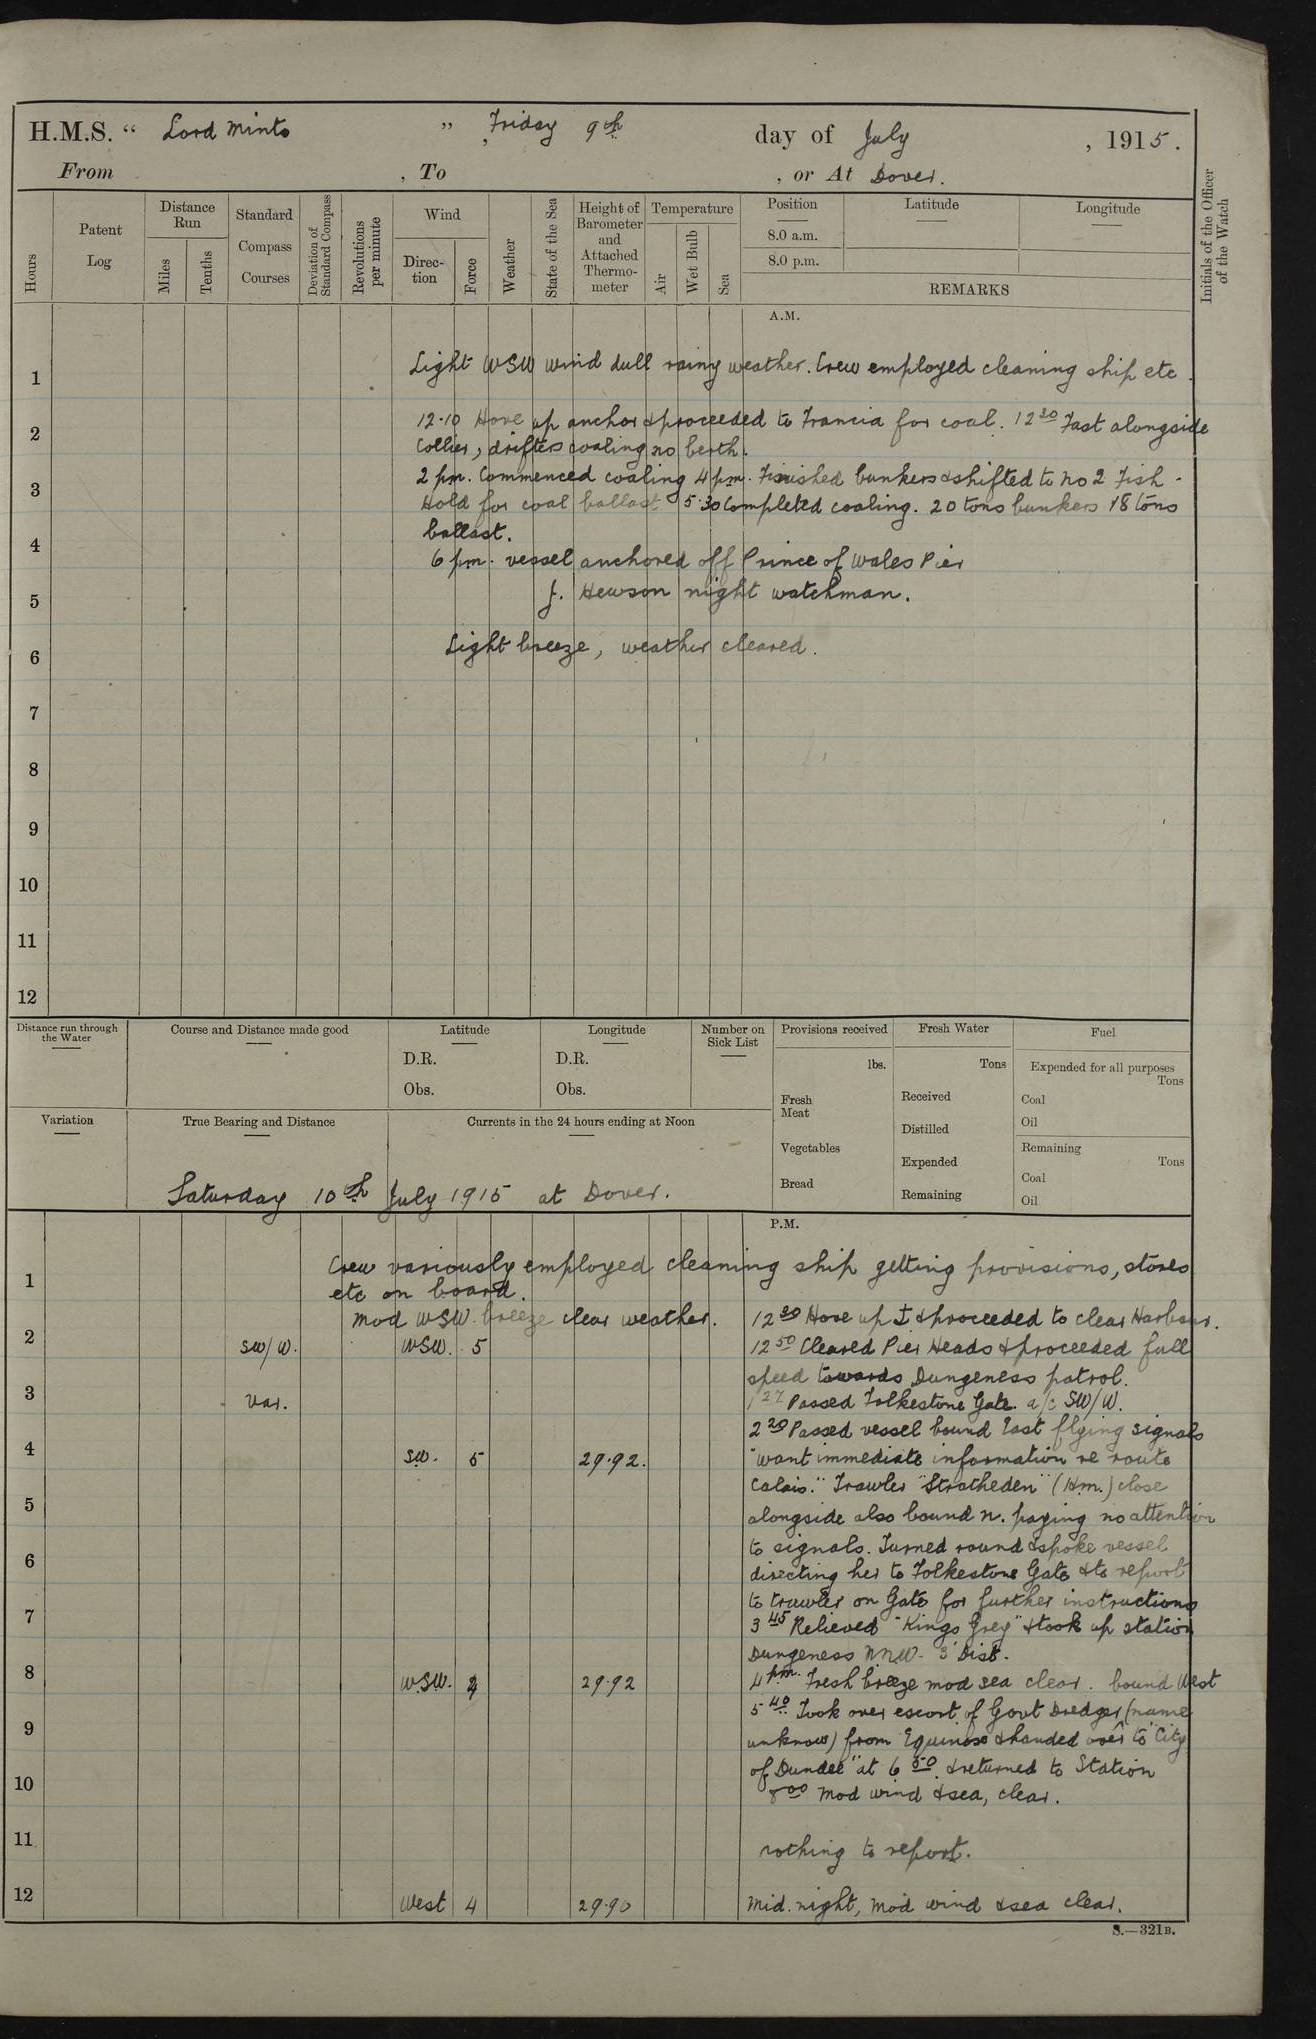 H.M.S. "Lord Minto", Friday 9th day of July, 1915.
From , To , or At Dover.
Hours
Patent Log
Distance Run
Miles
Tenths
Standard Compass Courses
Deviation of Standard Compass
Revolutions per minute
Wind
Direction
Force
Weather
State of the Sea
Height of Barometer and Attached Thermometer
Temperature
Air
Wet Bulb
Sea
Position
8.0 a.m.
8.0 p.m.
Latitude
Longitude
REMARKS
Initials of the Officer of the Watch
A.M.
Light WSW wind dull rainy weather. Crew employed cleaning ship etc.
1
12.10 Hove up anchor & proceeded to Francia for coal. 12 30 Fast alongside
2
Collier, drifters coaling no berth.
2 pm. Commenced coaling 4 pm. Finished bunkers & shifted to No 2 Fish-
3
Hold for coal ballast 5.30 Completed coaling. 20 tons bunkers 18 tons
ballast.
4
6 pm. vessel anchored off Prince of Wales Pier
J. Hewson night watchman.
5
Light breeze, weather cleared.
6
7
8
9
10
11
12
Distance run through the Water
Course and Distance made good
Latitude
D.R.
Obs.
Longitude
D.R.
Obs.
Number on Sick List
Provisions received
lbs.
Fresh Meat
Vegetables
Bread
Fresh Water
Tons
Received
Distilled
Expended
Remaining
Fuel
Expended for all purposes
Tons
Coal
Oil
Remaining
Tons
Coal
Oil
Variation
True Bearing and Distance
Currents in the 24 hours ending at Noon
Saturday 10th July 1915 at Dover.
P.M.
Crew variously employed cleaning ship getting provisions, stores
1
etc on board.
Mod WSW. breeze clear weather. 12 30 Hove up ⚓ & proceeded to clear Harbour.
2 SW/W. WSW. 5 12 50 Cleared Pier Heads & proceeded full
speed towards Dungeness patrol.
3 Var. 1 27 Passed Folkestone Gate. a/c SW/W.
2 20 Passed vessel bound East flying signals
4 SW. 5 29.92. "want immediate information re route
Calais." Trawler "Stratheden" (H.m.) close
5 alongside also bound N. paying no attention
to signals. Turned round & spoke vessel
6 directing her to Folkestone Gate & to report
to trawler on Gate for further instructions
7 3 45 Relieved "Kings Grey" & took up station
Dungeness NNW. 3' Dist.
8 WSW. 4 29.92 4 pm. Fresh breeze mod sea clear. bound West
5 40 Took over escort of Govt Dredger (name
9 unknow) from Equinox & handed over to "City
of Dundee" at 6 50. & returned to Station
10 8 00 Mod wind & sea, clear.
11 nothing to report.
12 West 4 29.90 Mid.night, Mod wind & sea clear.
S.—321B.